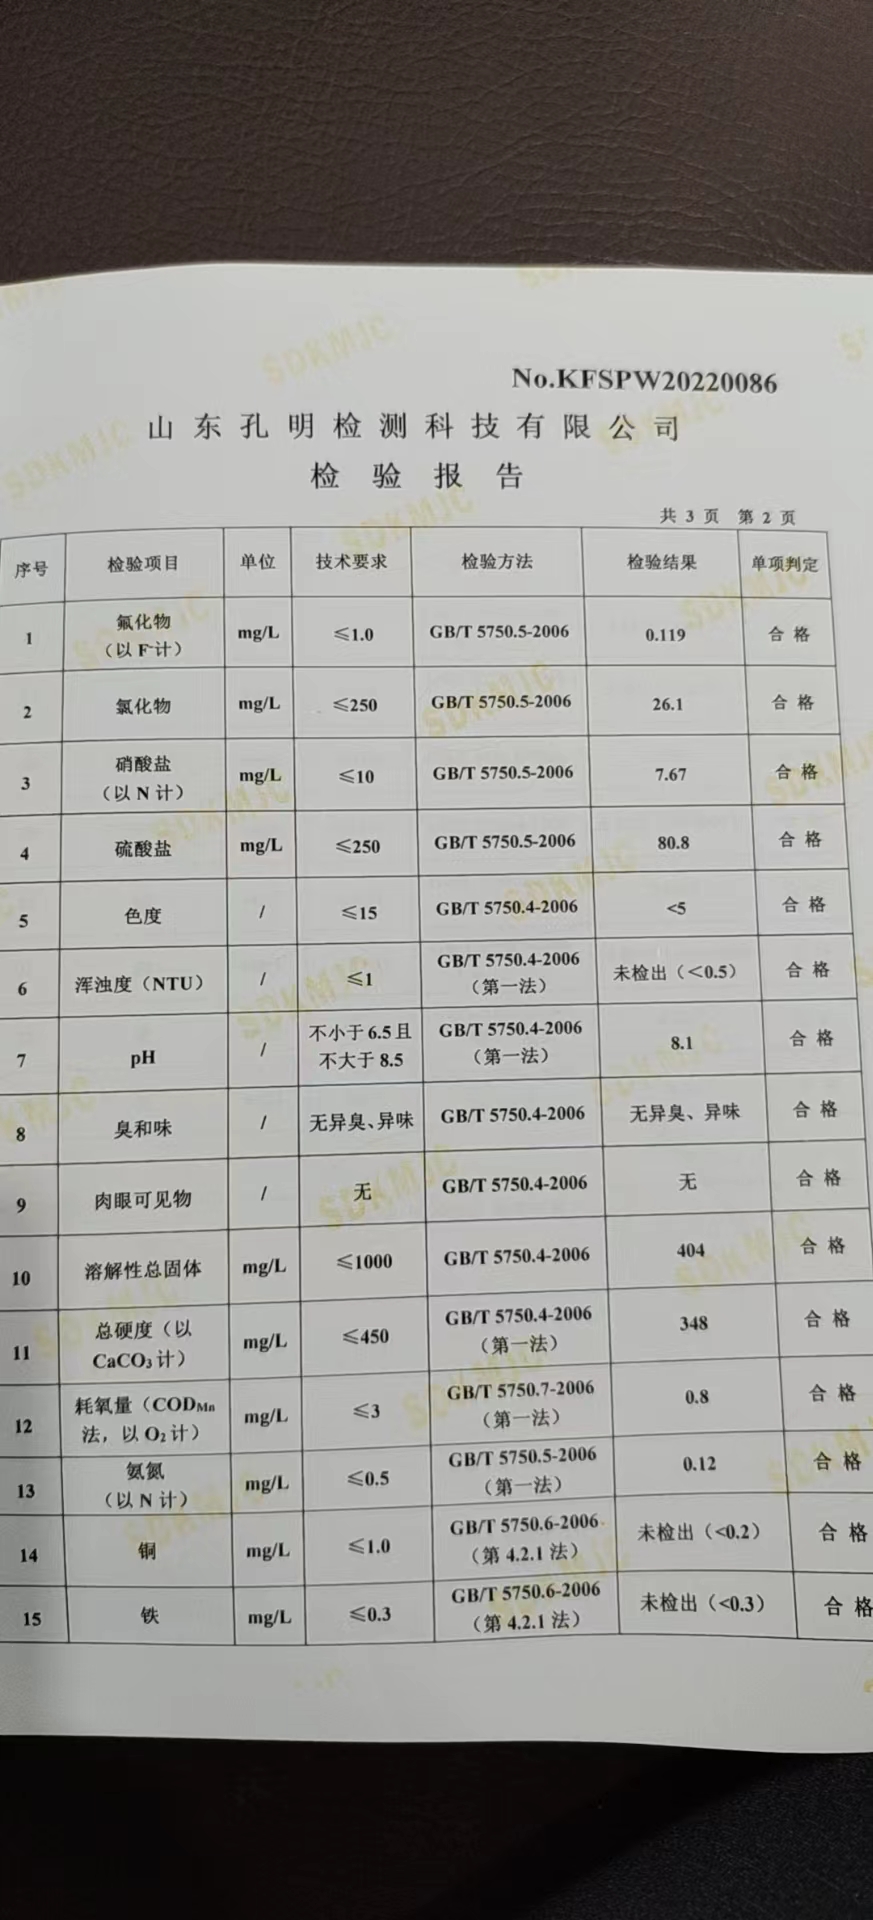 No.KFSPW20220086
山东孔明检测科技有限公司
检验报告
共 3 页 第 2 页
序号 检验项目 单位 技术要求 检验方法 检验结果 单项判定
1 氟化物（以 F⁻计） mg/L ≤1.0 GB/T 5750.5-2006 0.119 合格
2 氯化物 mg/L ≤250 GB/T 5750.5-2006 26.1 合格
3 硝酸盐（以 N 计） mg/L ≤10 GB/T 5750.5-2006 7.67 合格
4 硫酸盐 mg/L ≤250 GB/T 5750.5-2006 80.8 合格
5 色度 / ≤15 GB/T 5750.4-2006 <5 合格
6 浑浊度（NTU） / ≤1 GB/T 5750.4-2006（第一法） 未检出（＜0.5） 合格
7 pH / 不小于 6.5 且不大于 8.5 GB/T 5750.4-2006（第一法） 8.1 合格
8 臭和味 / 无异臭、异味 GB/T 5750.4-2006 无异臭、异味 合格
9 肉眼可见物 / 无 GB/T 5750.4-2006 无 合格
10 溶解性总固体 mg/L ≤1000 GB/T 5750.4-2006 404 合格
11 总硬度（以 CaCO₃ 计） mg/L ≤450 GB/T 5750.4-2006（第一法） 348 合格
12 耗氧量（CODMn 法，以 O₂ 计） mg/L ≤3 GB/T 5750.7-2006（第一法） 0.8 合格
13 氨氮（以 N 计） mg/L ≤0.5 GB/T 5750.5-2006（第一法） 0.12 合格
14 铜 mg/L ≤1.0 GB/T 5750.6-2006（第 4.2.1 法） 未检出（<0.2） 合格
15 铁 mg/L ≤0.3 GB/T 5750.6-2006（第 4.2.1 法） 未检出（<0.3） 合格
SDKMJC